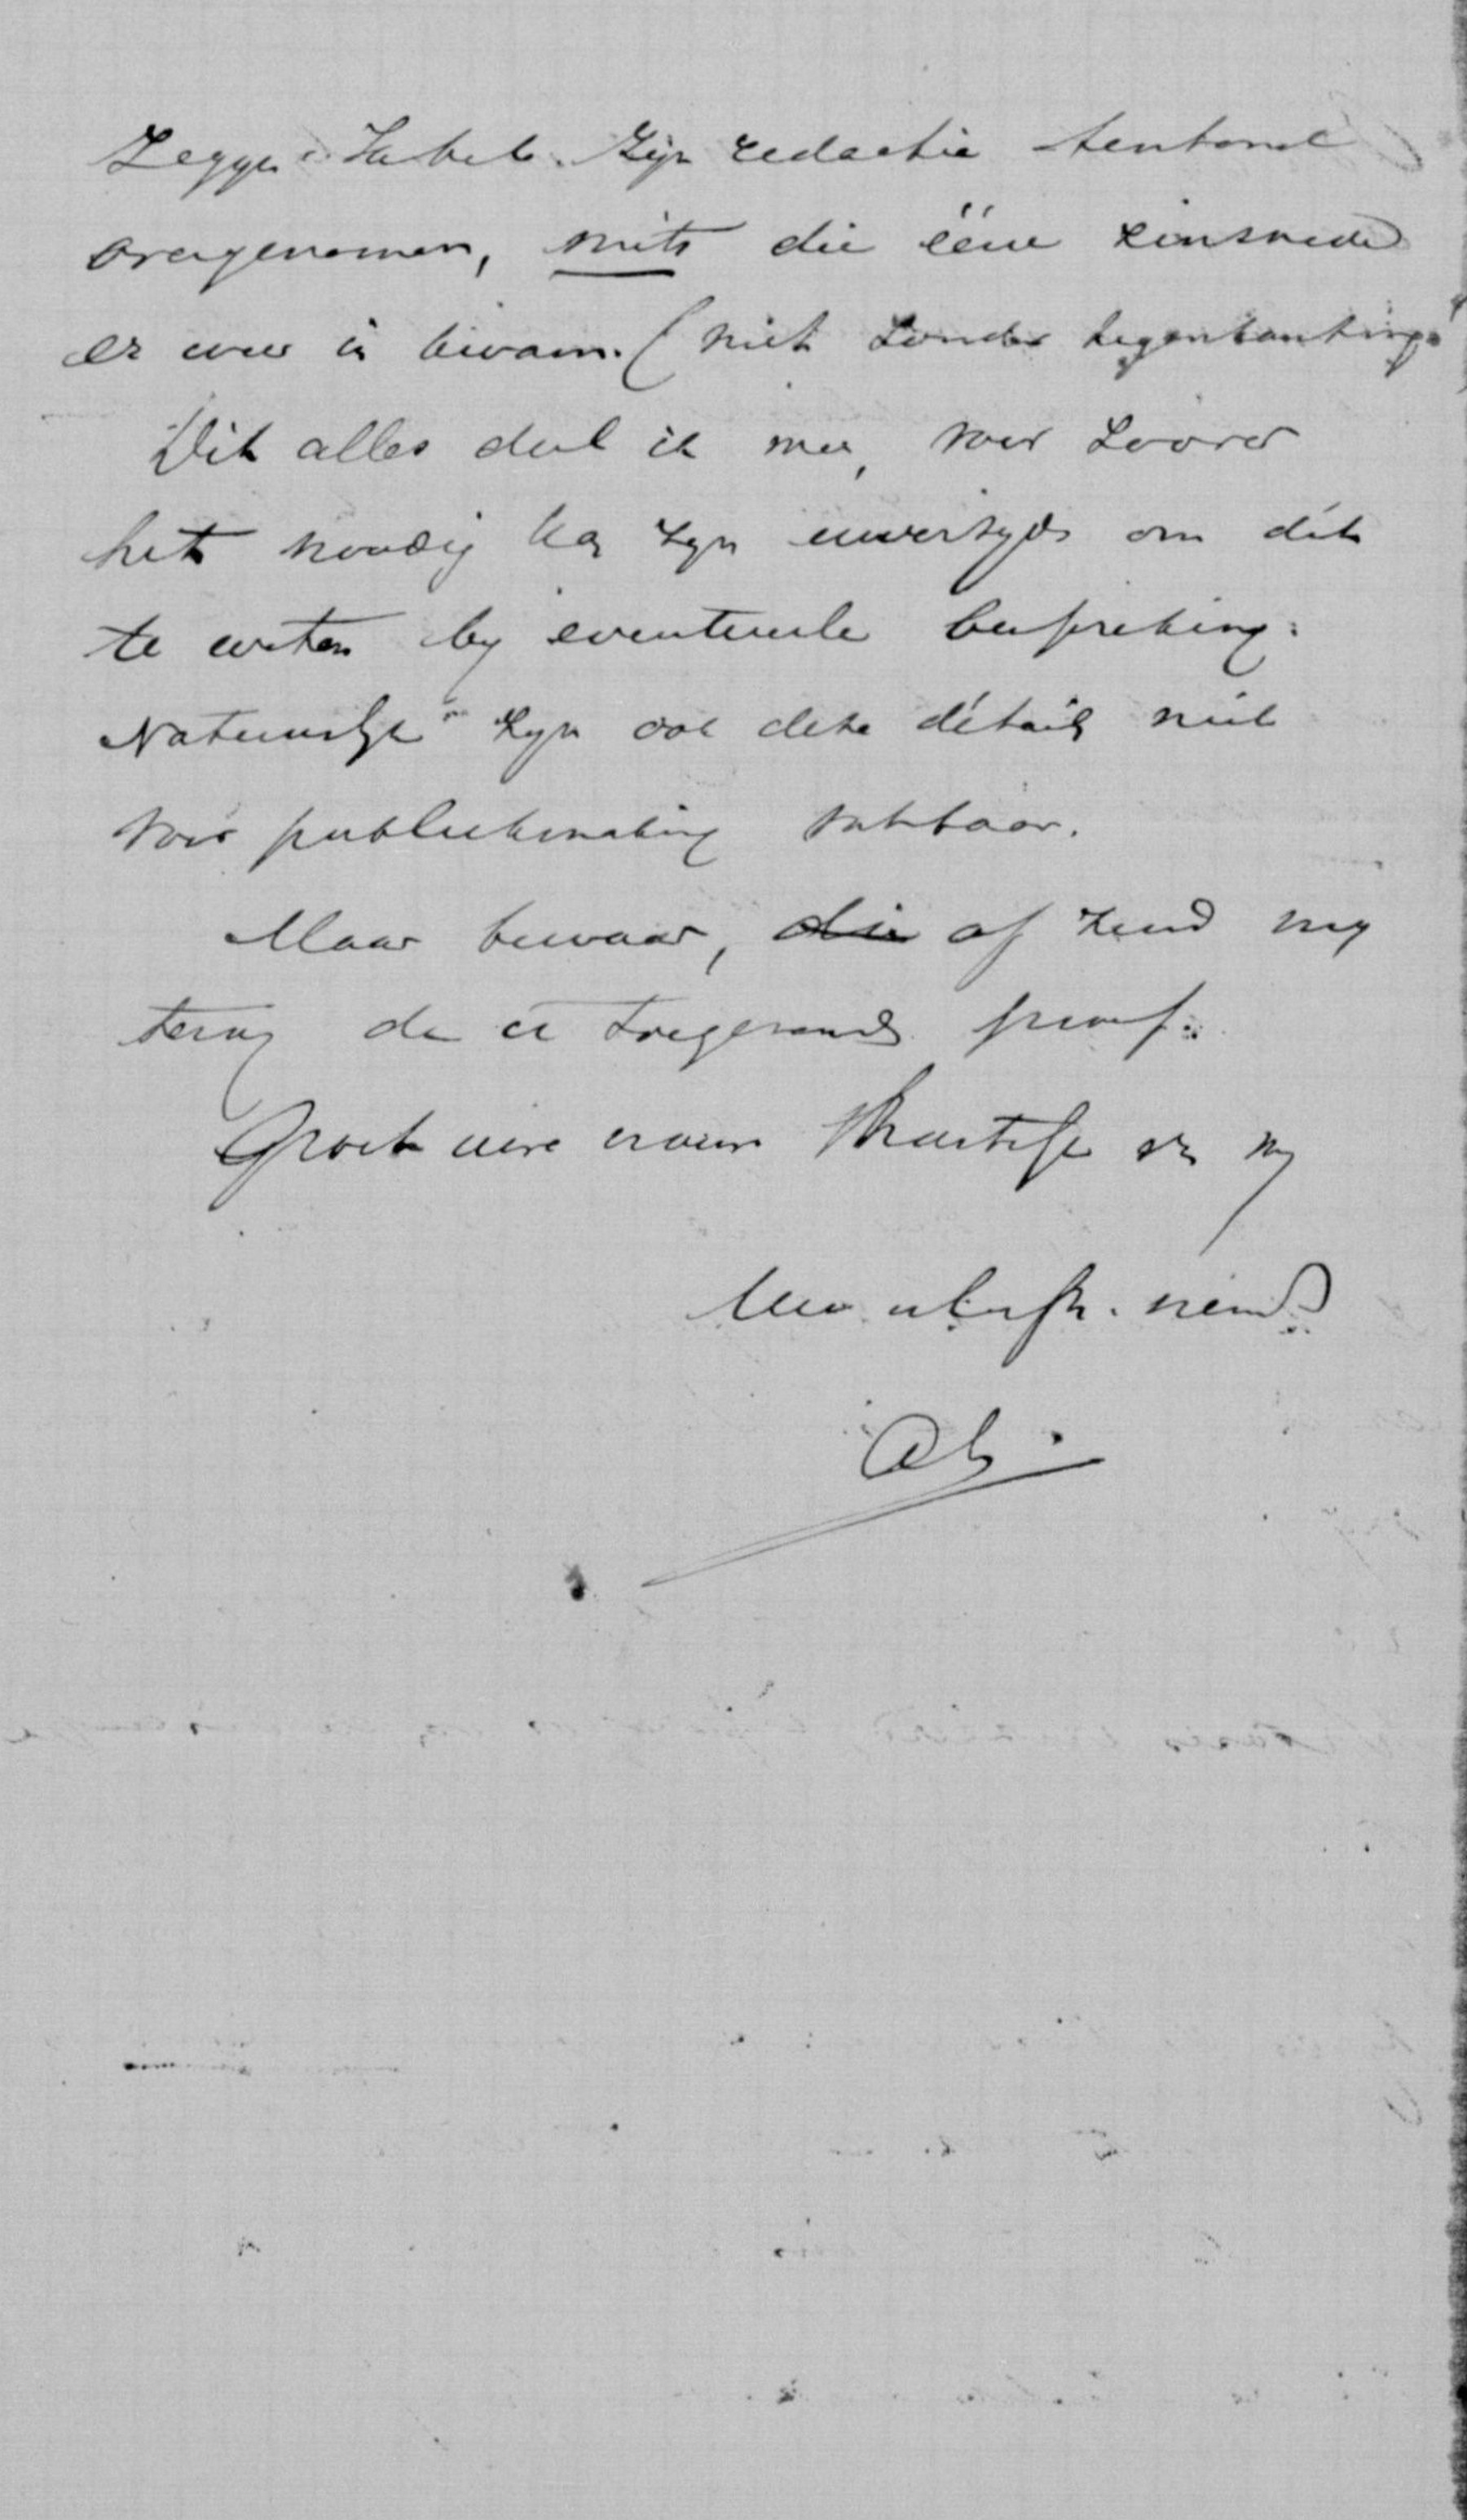 Leggen: Ik heb zijn redactie
overgenomen, mits die ééne zinsnede
er weer in kwam. (niet zonder tegenkanting.
Dit alles deel ik mee, voor zoover
het noodig kan zyn uwerzyds om dit
te weten by eventueele bespreking.
Natuurlyk zyn ook deze détails niet
voor publiekmaking vatbaar.
Maar bewaar, die of zend my
terug de toegezonden proef.
Groet uwe vrouw hartelyk van my
Uw vriend